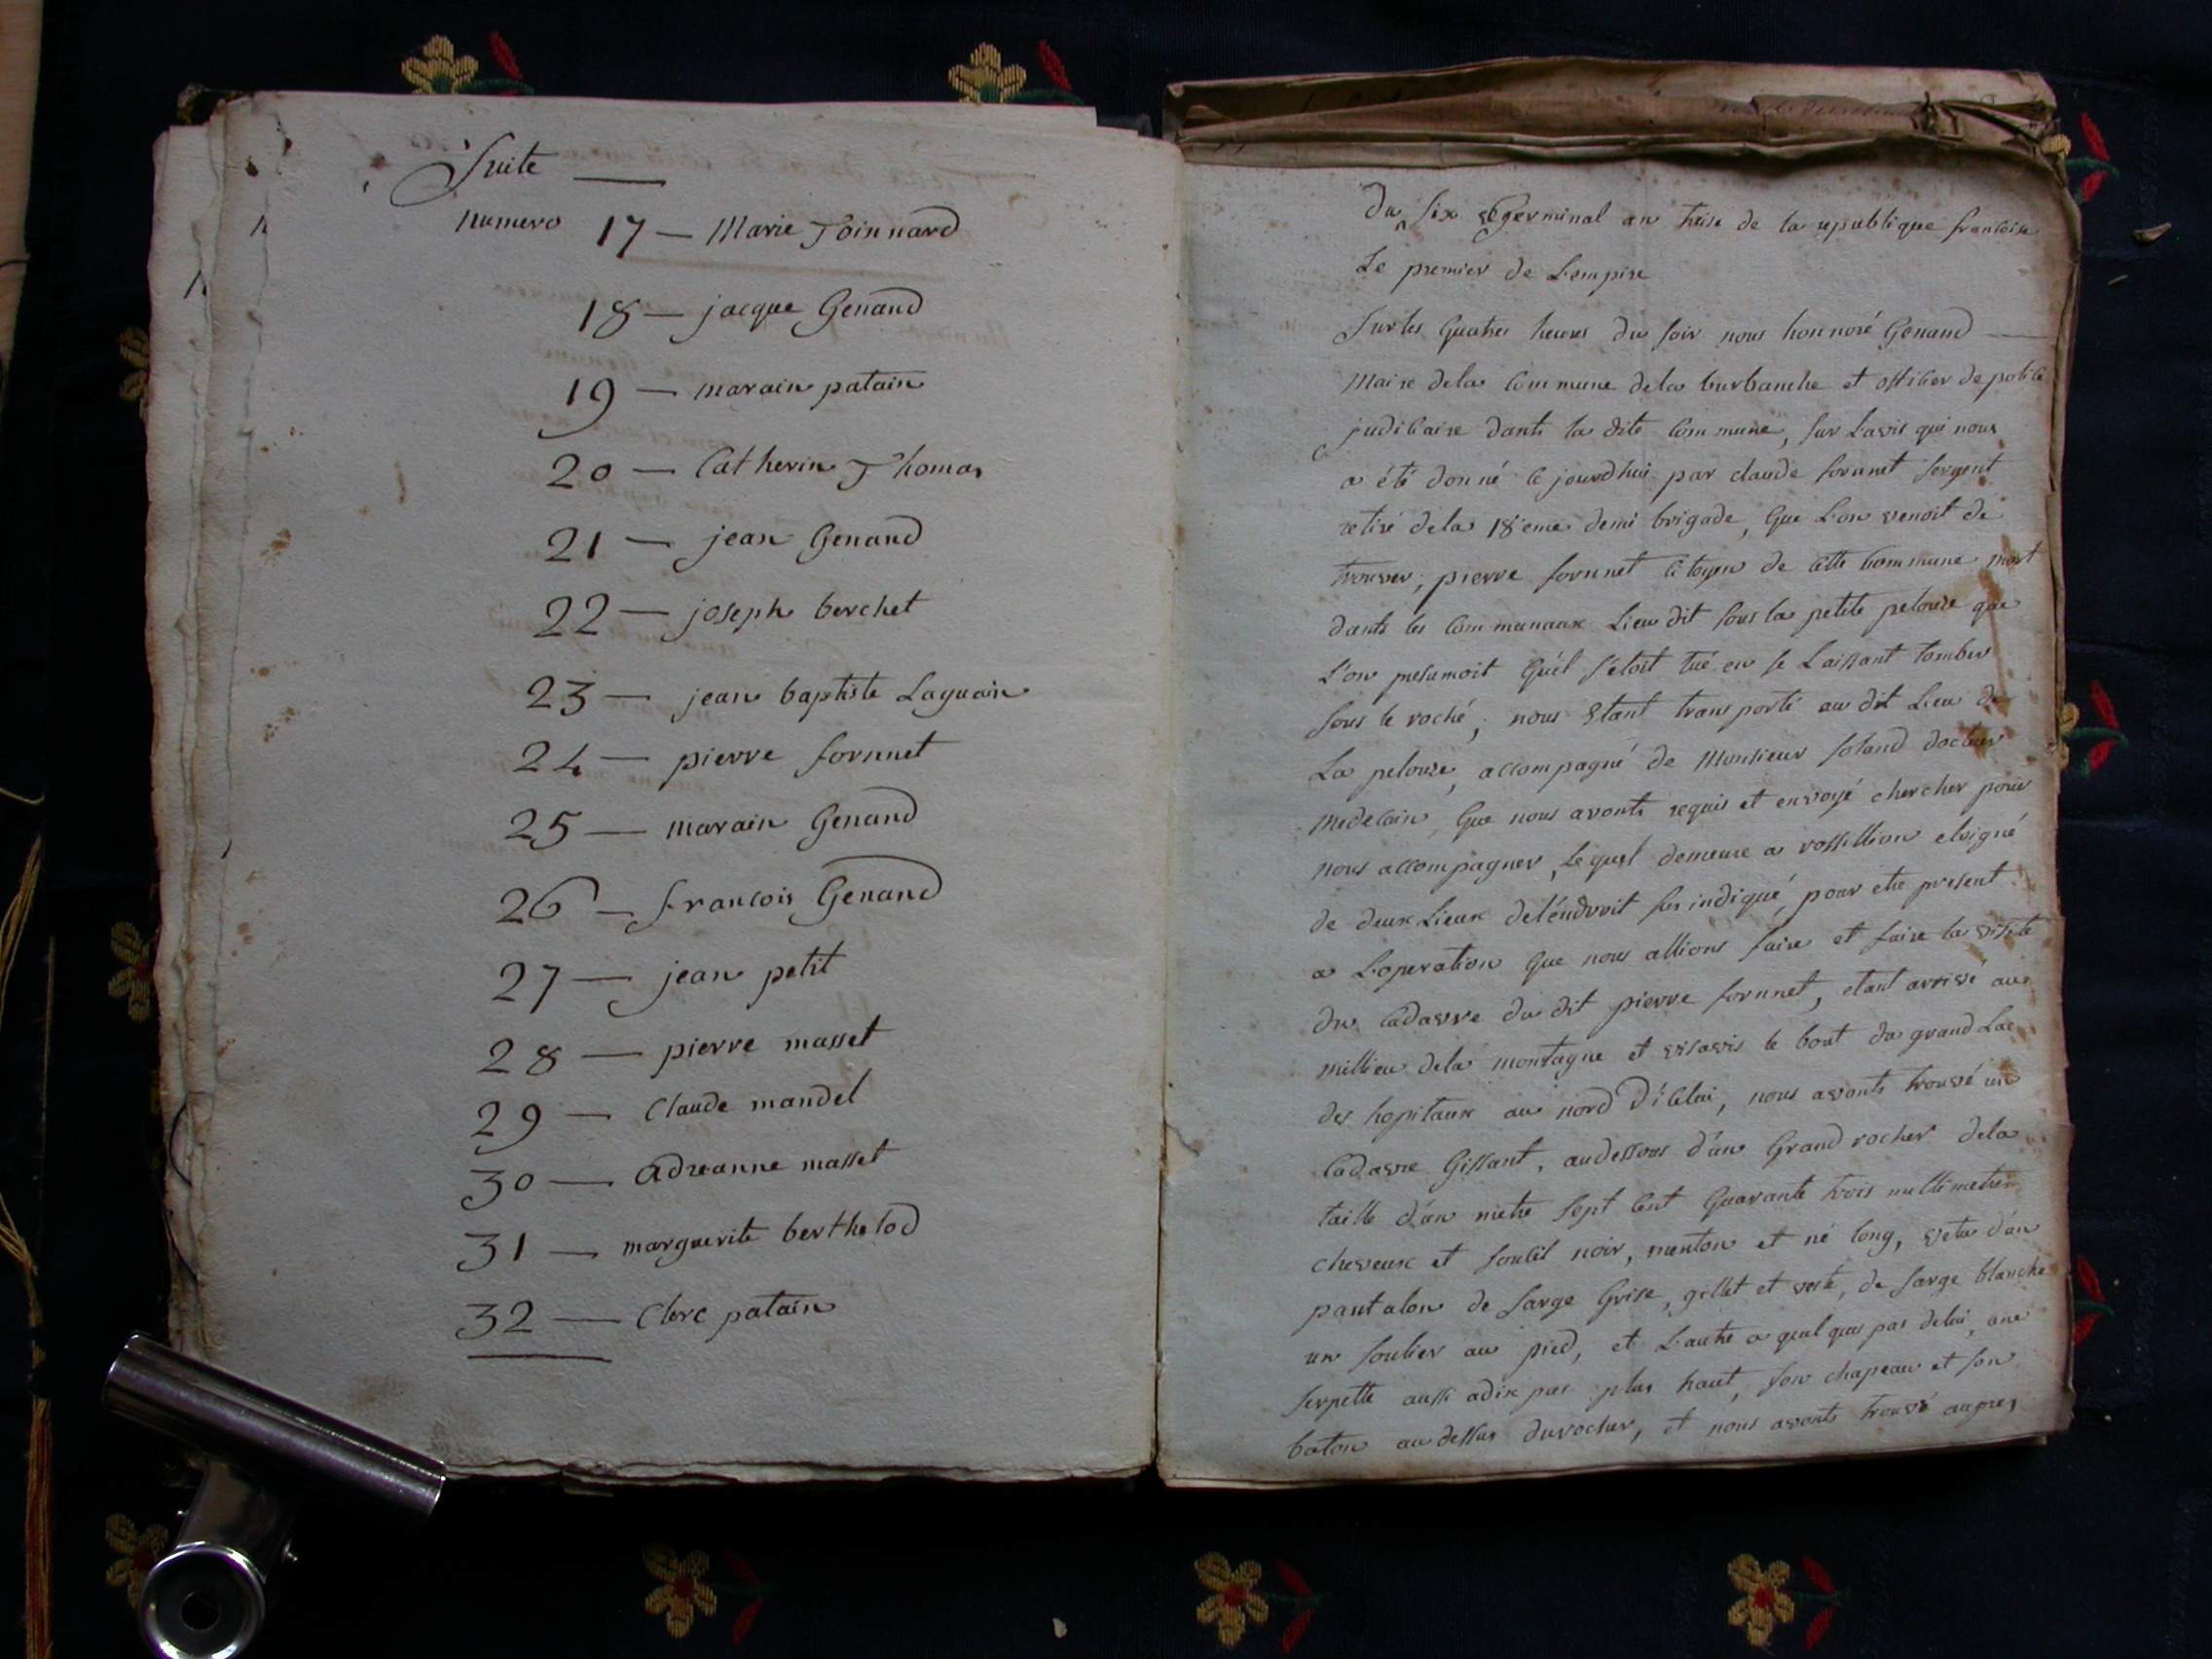 Suite
numero 17 — Marie Joinnard
18 — jacque Genand
19 — marain patain
20 — Catherin Thomas
21 — jean Genand
22 — joseph berchet
23 — jean baptiste Laguain
24 — pierre fornnet
25 — marain Genand
26 — francois Genand
27 — jean petit
28 — pierre masset
29 — Claude mandel
30 — adreanne masset
31 — marguerite berthelod
32 — Clerc patain
Du six germinal an treise de la republique francoise
Le premier de L'empire
Sur les quatres heures du soir nous honnoré Genand
Maire dela Commune dela burbanche et officier de police
judiciaire dants la dite Commune, sur L'avis qui nous
a été donné ce jourdhui par claude fornnet sergent
retiré dela 18eme demi brigade, que L'on venoit de
trouver, pierre fornnet citoyen de cette commune mort
dants les communaux Lieu dit sous la petite pelouze que
L'on presumoit qu'el s'étoit tué en se Laissant tomber
sous le roché, nous Etant transporté au dit Lieu de
La pelouze, accompagné de Monsieur foland docteur
medecain, que nous avonts requis et envoyé chercher pour
nous accompagner, Lequel demeure a rossillion eloigné
de deux Lieux deléndroit sus indiqué, pour etre present
a L'operation que nous allions faire et faire la visite
du Cadavre du dit pierre fornnet, etant arrivé au
millieu dela montagne et visavis le bout du grand Lac
des hopitaux au nord D'icelui, nous avonts trouvé un
Cadavre Gissant, audessous d'un Grand rocher dela
taille d'un metre sept Cent Quarante trois millimetres
cheveux et soucil noir, menton et né long, vetu d'un
pantalon de sarge Grise, gillet et veste, de sarge blanche
un soulier au pied, et L'autre a quelques pas delui, une
serpette aussi adix pas plus haut, son chapeau et son
baton au dessus durocher, et nous avonts trouvé aupres